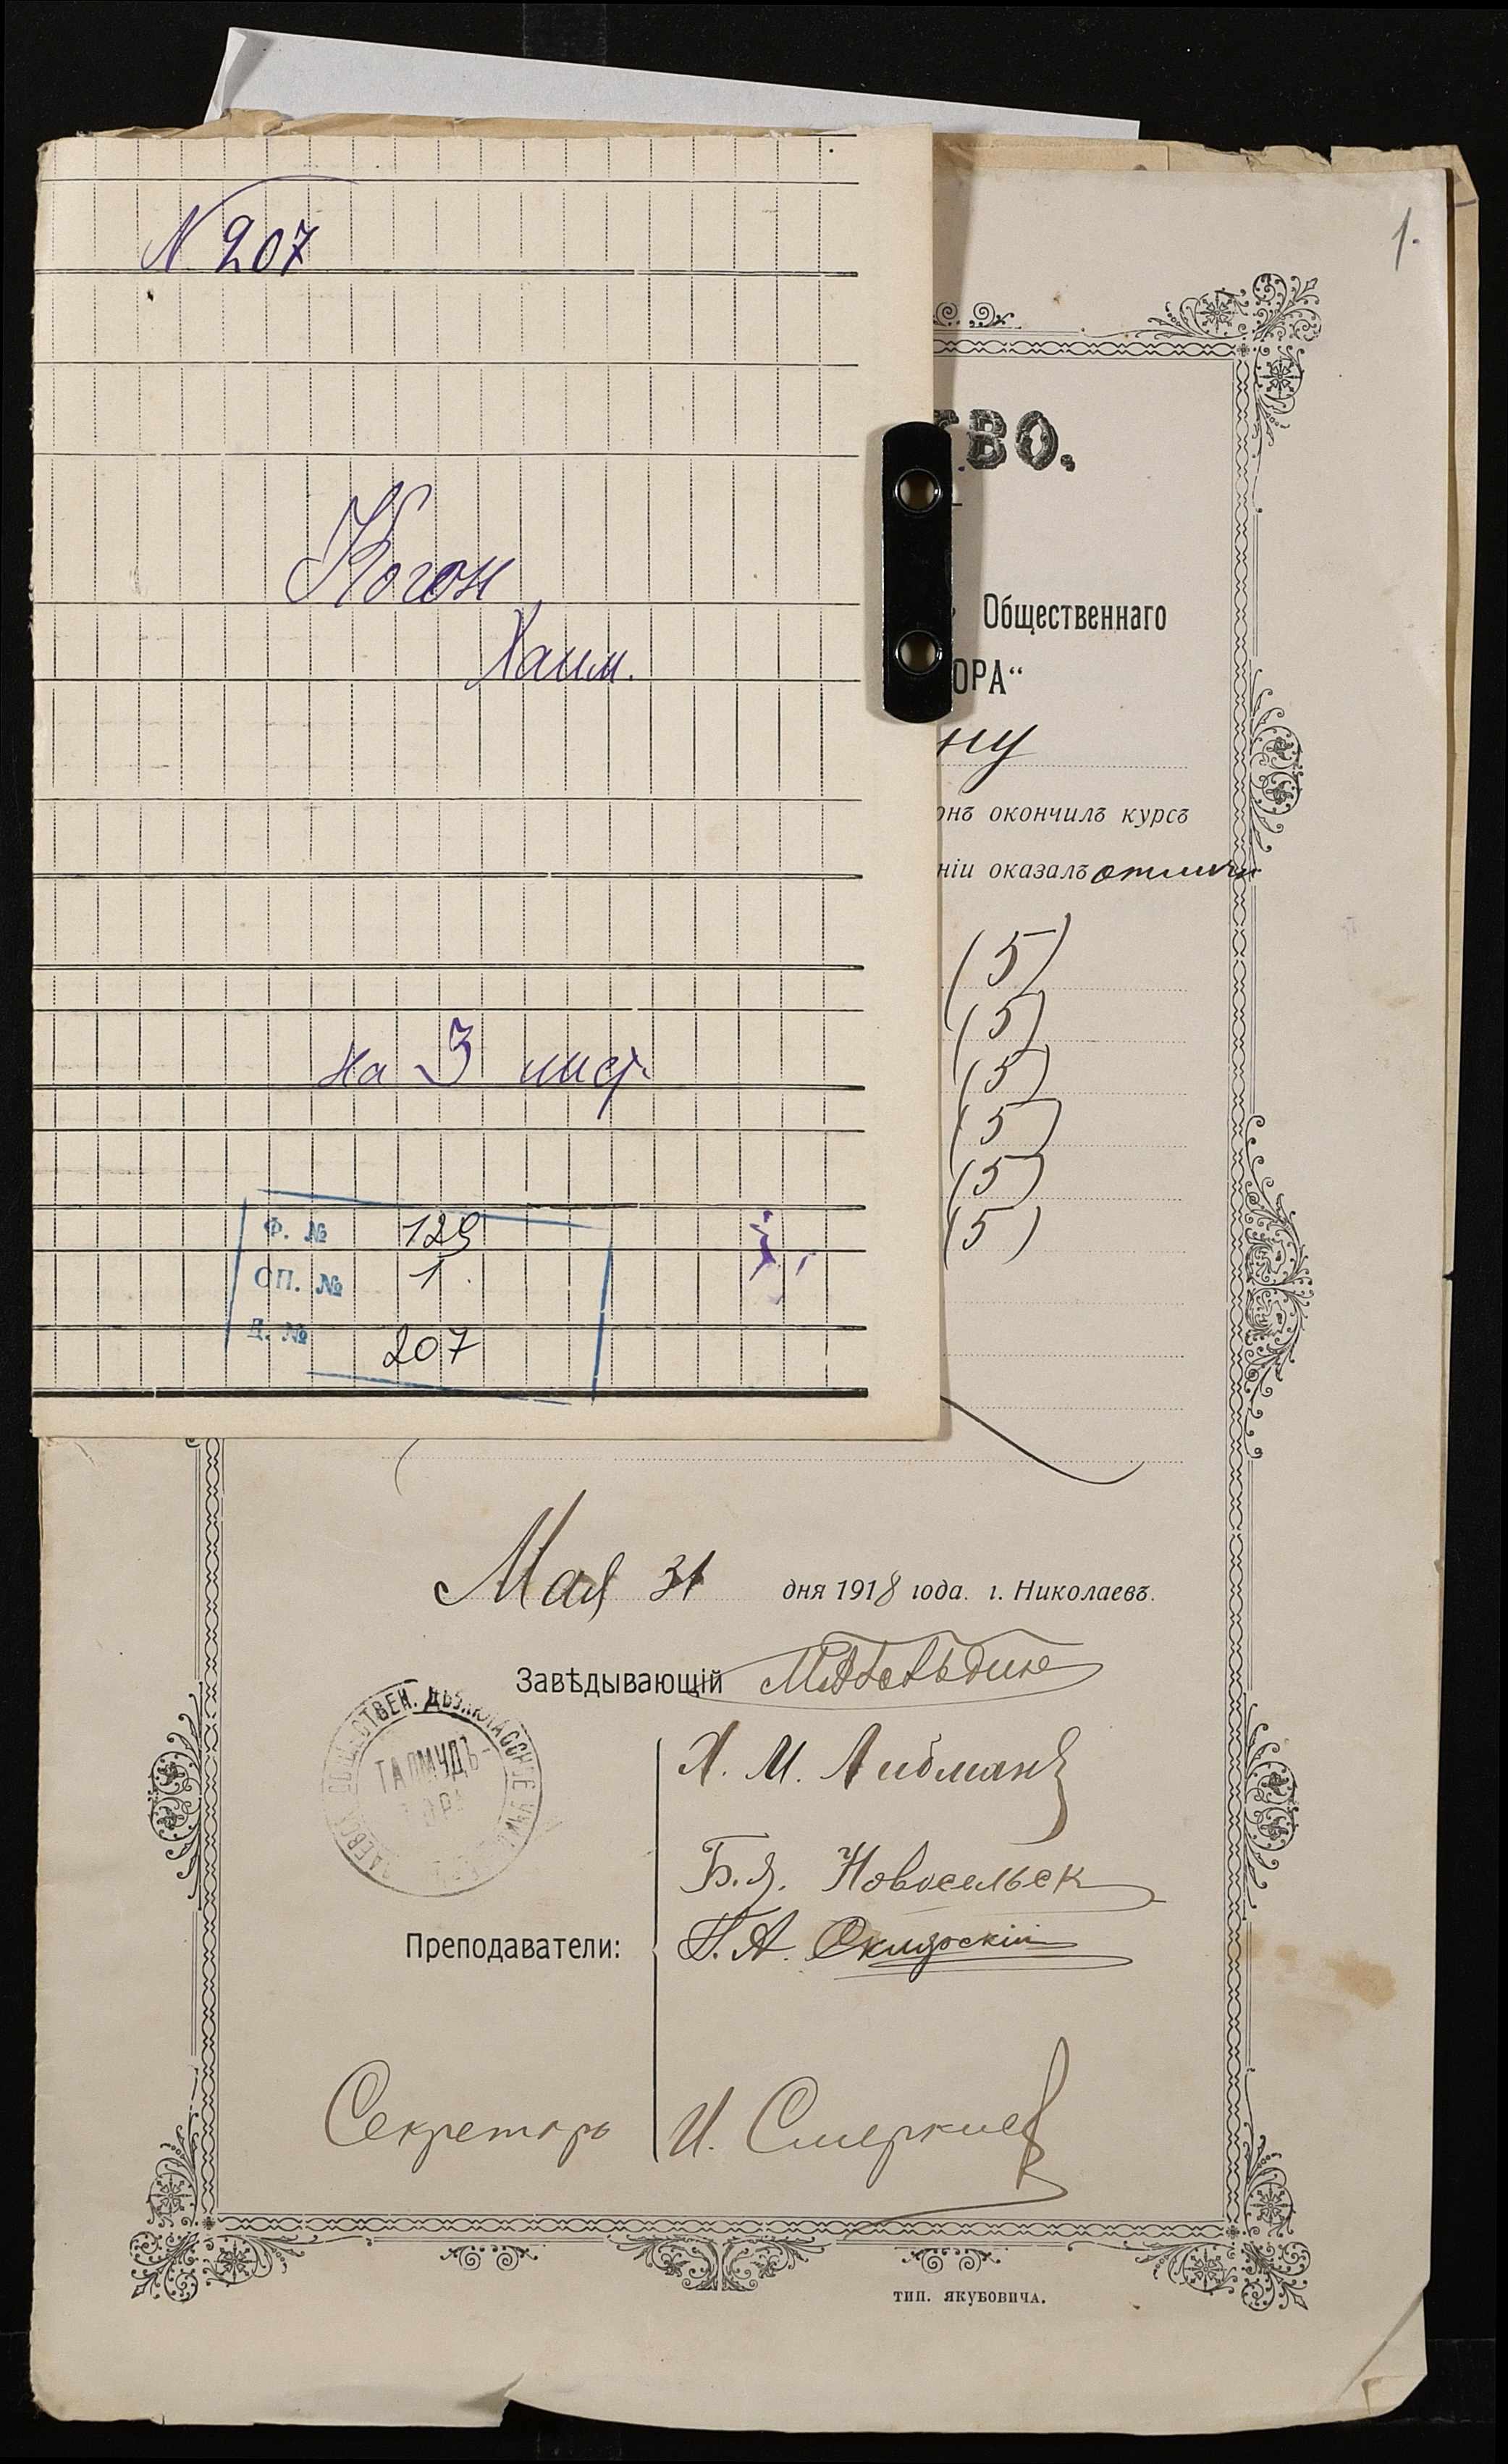 N 207
Когон
Хаим.
на 3 лист.
Ф. № 129
ОП. № 1.
Д. № 207
1.
ВО.
Общественнаго
ОРА“
ну
онъ окончилъ курсъ
ніи оказалъ отличн
(5)
(5)
(5)
(5)
(5)
(5)
Мая 31 дня 1918 года. г. Николаевъ.
Завѣдывающій
ОБЩЕСТВЕН. ДВУХКЛАССНОЕ
ТАЛМУДЪ-
ТОРА
Х. М. Либманъ
Б. Я. Новосельск
Преподаватели:
Секретарь
И.
ТИП. ЯКУБОВИЧА.